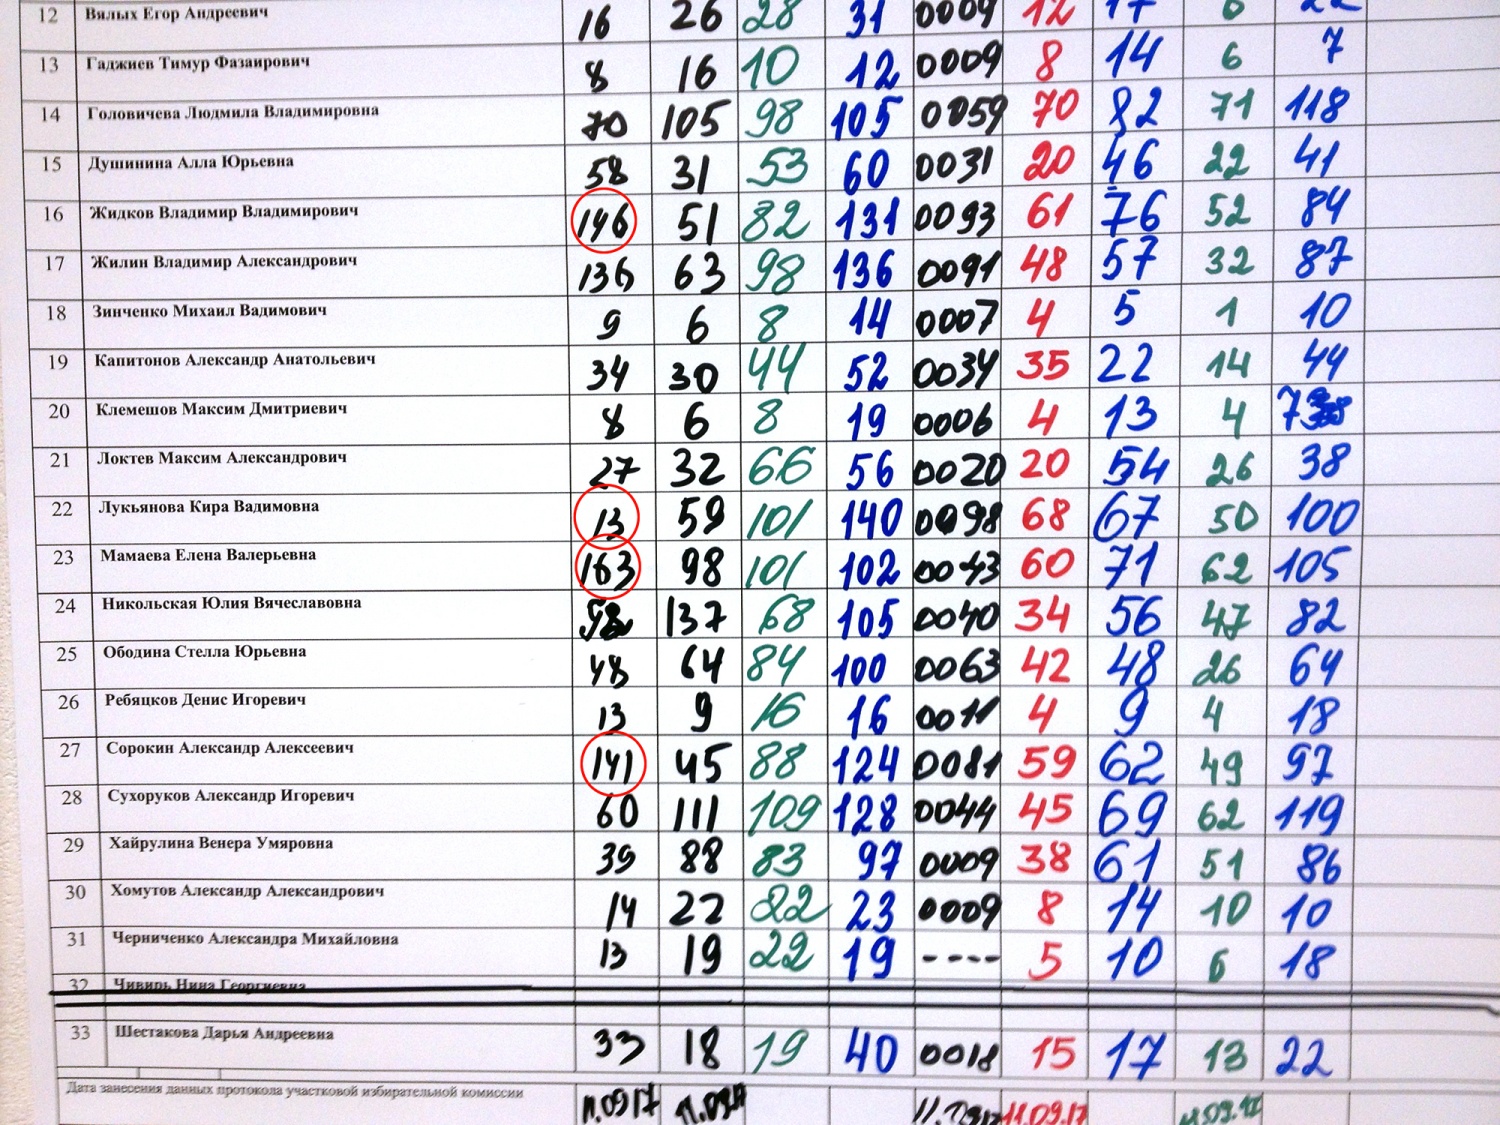 12 Вялых Егор Андреевич 16 26 28 31 0009 12 17 6 22
13 Гаджиев Тимур Фазаирович 8 16 10 12 0009 8 14 6 7
14 Головичева Людмила Владимировна 70 105 98 105 0059 70 82 71 118
15 Душинина Алла Юрьевна 58 31 53 60 0031 20 46 22 41
16 Жидков Владимир Владимирович 146 51 82 131 0093 61 76 52 84
17 Жилин Владимир Александрович 136 63 98 136 0091 48 57 32 87
18 Зинченко Михаил Вадимович 9 6 8 14 0007 4 5 1 10
19 Капитонов Александр Анатольевич 34 30 44 52 0034 35 22 14 44
20 Клемешов Максим Дмитриевич 8 6 8 19 0006 4 13 4
21 Локтев Максим Александрович 27 32 66 56 0020 20 54 26 38
22 Лукьянова Кира Вадимовна 13 59 101 140 0098 68 67 50 100
23 Мамаева Елена Валерьевна 163 98 101 102 0043 60 71 62 105
24 Никольская Юлия Вячеславовна 137 68 105 0040 34 56 47 82
25 Ободина Стелла Юрьевна 48 64 84 100 0063 42 48 26 64
26 Ребяцков Денис Игоревич 13 9 16 16 0011 4 9 4 18
27 Сорокин Александр Алексеевич 141 45 88 124 0081 59 62 49 97
28 Сухоруков Александр Игоревич 60 111 109 128 0044 45 69 62 119
29 Хайрулина Венера Умяровна 39 88 83 97 0009 38 61 51 86
30 Хомутов Александр Александрович 14 22 22 23 0009 8 14 10 10
31 Черниченко Александра Михайловна 13 19 22 19 ---- 5 10 6 18
32 Чивирь Нина Георгиевна
33 Шестакова Дарья Андреевна 33 18 19 40 0018 15 17 13 22
Дата занесения данных протокола участковой избирательной комиссии 11.0917 11.0917 11.0917 11.09.17 11.09.17